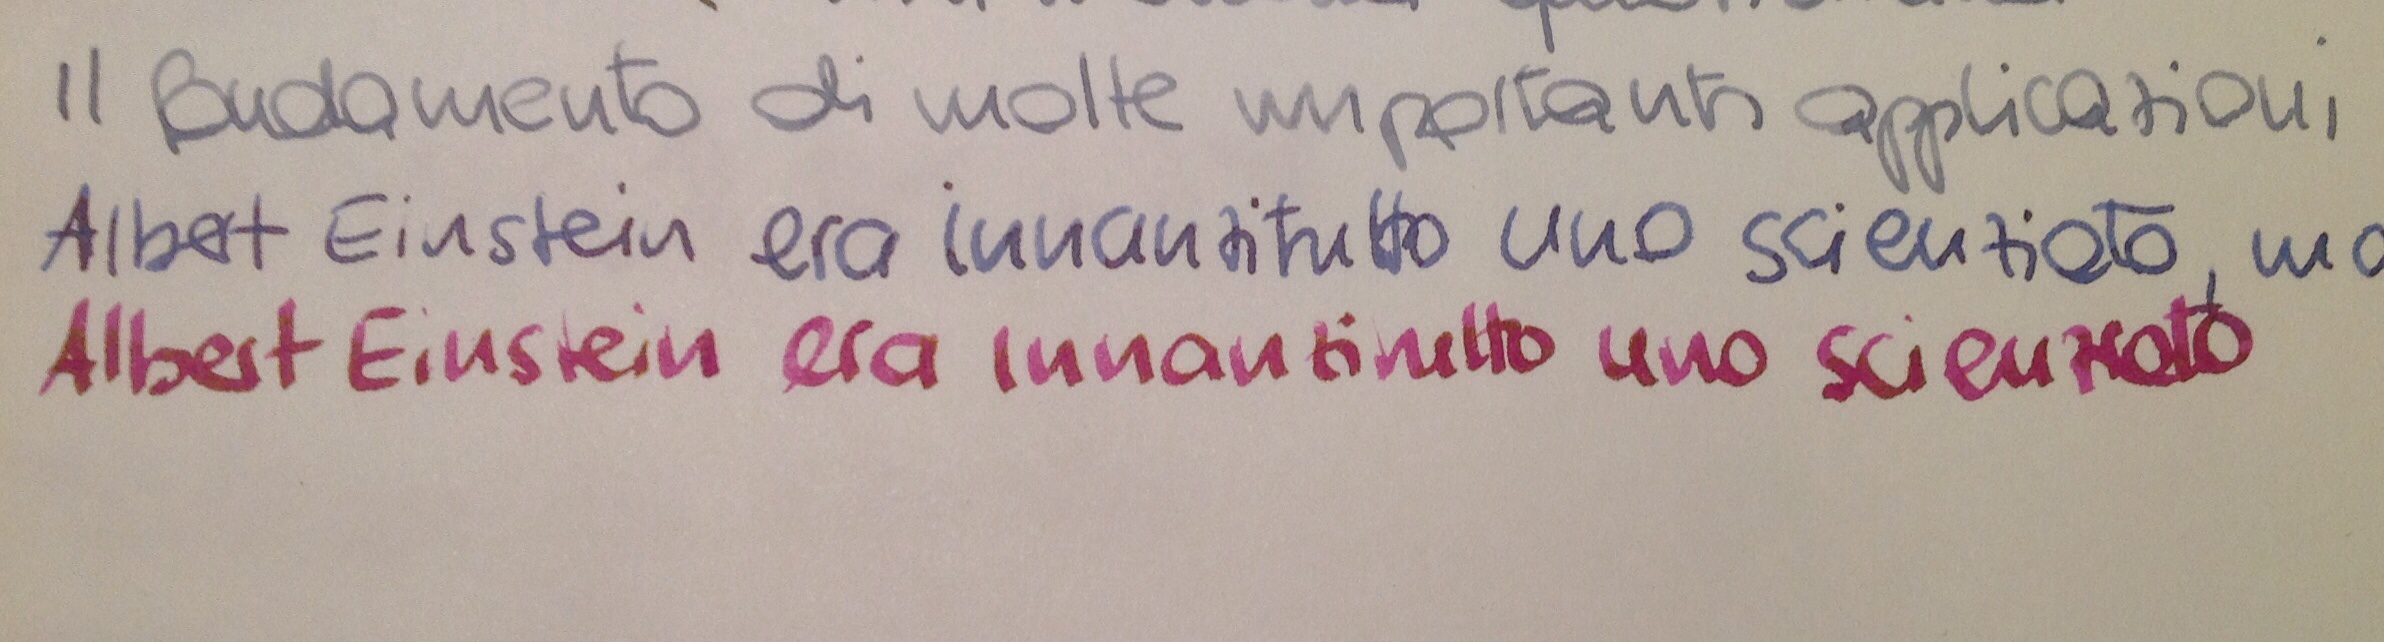 Il fondamento di molte importanti applicazioni
Albert Einstein era innanzitutto uno scienziato, ma
Albert Einstein era innanzitutto uno scienziato